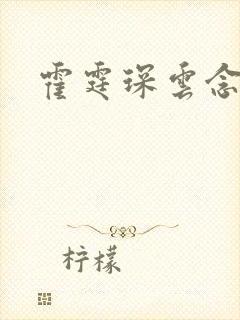 霍霆琛雲念
柠檬